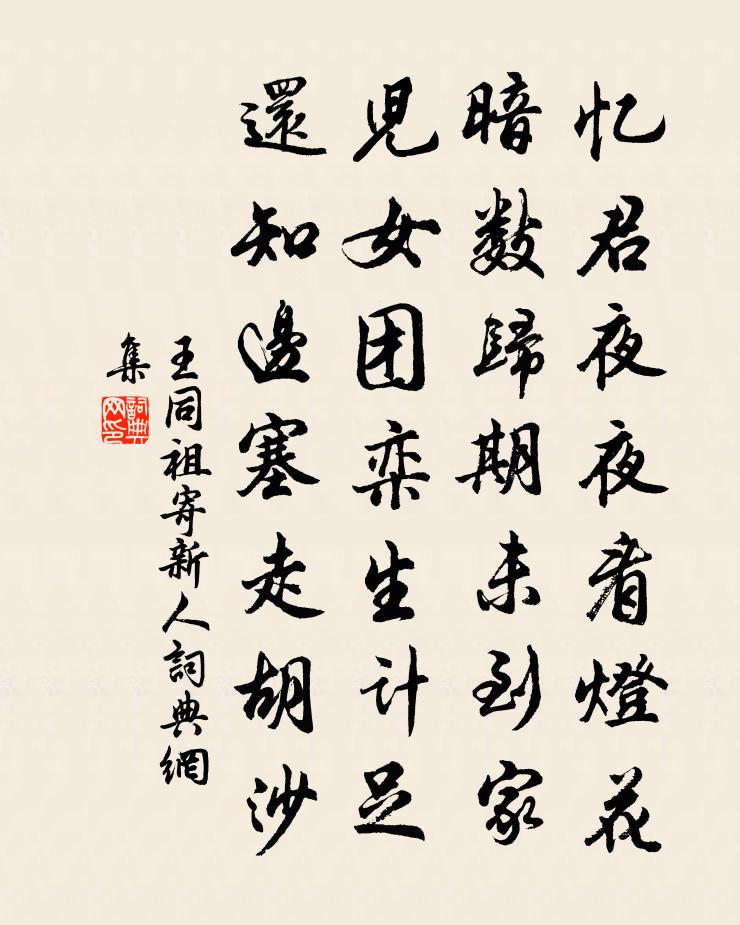 忆君夜夜看燈花
暗数歸期未到家
児女団栾生计足
還知邊塞走胡沙
王同祖寄新人詞典網
集
詞典
网印